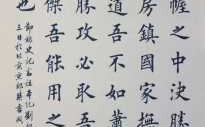 幄之中決勝
房鎮國家撫
道吾不如蕭
勝攻必取吾
傑吾能用之
也
節錄史記高祖本記劉
三日於北京